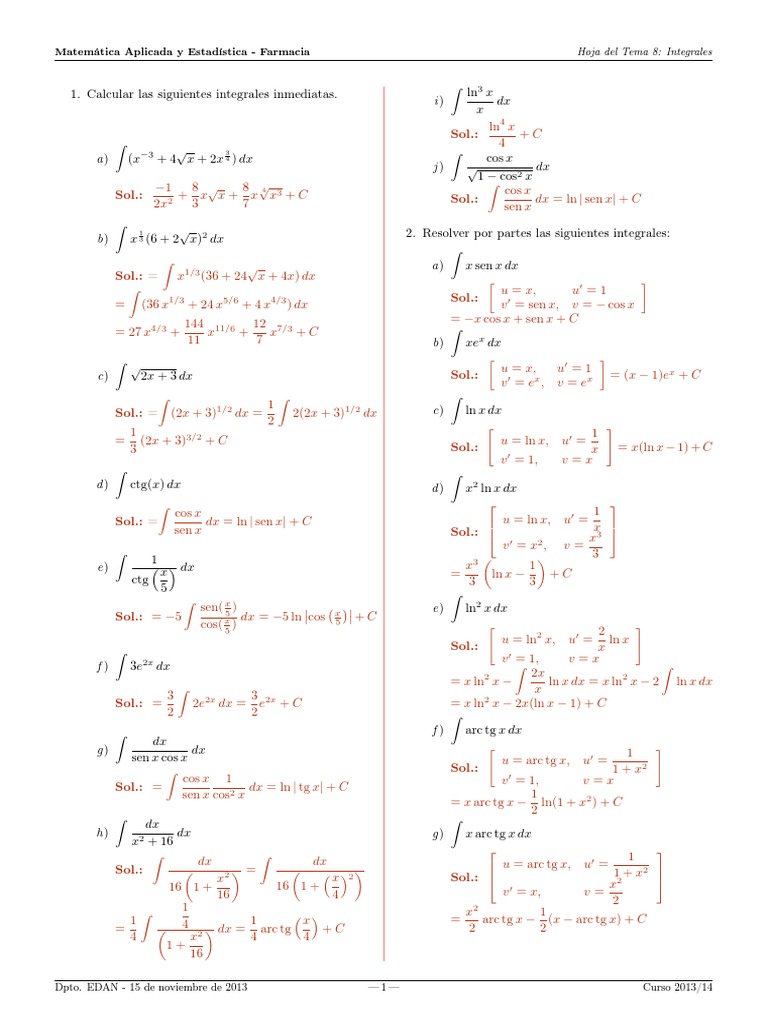 Matemática Aplicada y Estadística - Farmacia
Hoja del Tema 8: Integrales
1. Calcular las siguientes integrales inmediatas.
a) ∫(x⁻³ + 4√x + 2x^{3/4}) dx
Sol.: −1/(2x²) + (8/3)x√x + (8/7)x ⁴√(x³) + C
b) ∫ x^{1/3}(6 + 2√x)² dx
Sol.: = ∫ x^{1/3}(36 + 24√x + 4x) dx
= ∫(36 x^{1/3} + 24 x^{5/6} + 4 x^{4/3}) dx
= 27 x^{4/3} + (144/11) x^{11/6} + (12/7) x^{7/3} + C
c) ∫ √(2x + 3) dx
Sol.: = ∫(2x + 3)^{1/2} dx = (1/2) ∫ 2(2x + 3)^{1/2} dx
= (1/3) (2x + 3)^{3/2} + C
d) ∫ ctg(x) dx
Sol.: = ∫ (cos x / sen x) dx = ln | sen x| + C
e) ∫ 1/(ctg (x/5)) dx
Sol.: = −5 ∫ (sen(x/5) / cos(x/5)) dx = −5 ln |cos (x/5)| + C
f) ∫ 3e^{2x} dx
Sol.: = (3/2) ∫ 2e^{2x} dx = (3/2) e^{2x} + C
g) ∫ dx/(sen x cos x) dx
Sol.: = ∫ (cos x / sen x) (1 / cos² x) dx = ln | tg x| + C
h) ∫ dx/(x² + 16) dx
Sol.: ∫ dx / (16 (1 + x²/16)) = ∫ dx / (16 (1 + (x/4)²))
= (1/4) ∫ (1/4) / (1 + x²/16) dx = (1/4) arc tg (x/4) + C
i) ∫ (ln³ x / x) dx
Sol.: (ln⁴ x / 4) + C
j) ∫ cos x / √(1 − cos² x) dx
Sol.: ∫ (cos x / sen x) dx = ln | sen x| + C
2. Resolver por partes las siguientes integrales:
a) ∫ x sen x dx
Sol.: [ u = x, u′ = 1
v′ = sen x, v = − cos x ]
= −x cos x + sen x + C
b) ∫ xe^x dx
Sol.: [ u = x, u′ = 1
v′ = e^x, v = e^x ] = (x − 1)e^x + C
c) ∫ ln x dx
Sol.: [ u = ln x, u′ = 1/x
v′ = 1, v = x ] = x(ln x − 1) + C
d) ∫ x² ln x dx
Sol.: [ u = ln x, u′ = 1/x
v′ = x², v = x³/3 ]
= (x³/3) (ln x − 1/3) + C
e) ∫ ln² x dx
Sol.: [ u = ln² x, u′ = (2/x) ln x
v′ = 1, v = x ]
= x ln² x − ∫ (2x/x) ln x dx = x ln² x − 2 ∫ ln x dx
= x ln² x − 2x(ln x − 1) + C
f) ∫ arc tg x dx
Sol.: [ u = arc tg x, u′ = 1/(1 + x²)
v′ = 1, v = x ]
= x arc tg x − (1/2) ln(1 + x²) + C
g) ∫ x arc tg x dx
Sol.: [ u = arc tg x, u′ = 1/(1 + x²)
v′ = x, v = x²/2 ]
= (x²/2) arc tg x − (1/2)(x − arc tg x) + C
Dpto. EDAN - 15 de noviembre de 2013
—1—
Curso 2013/14